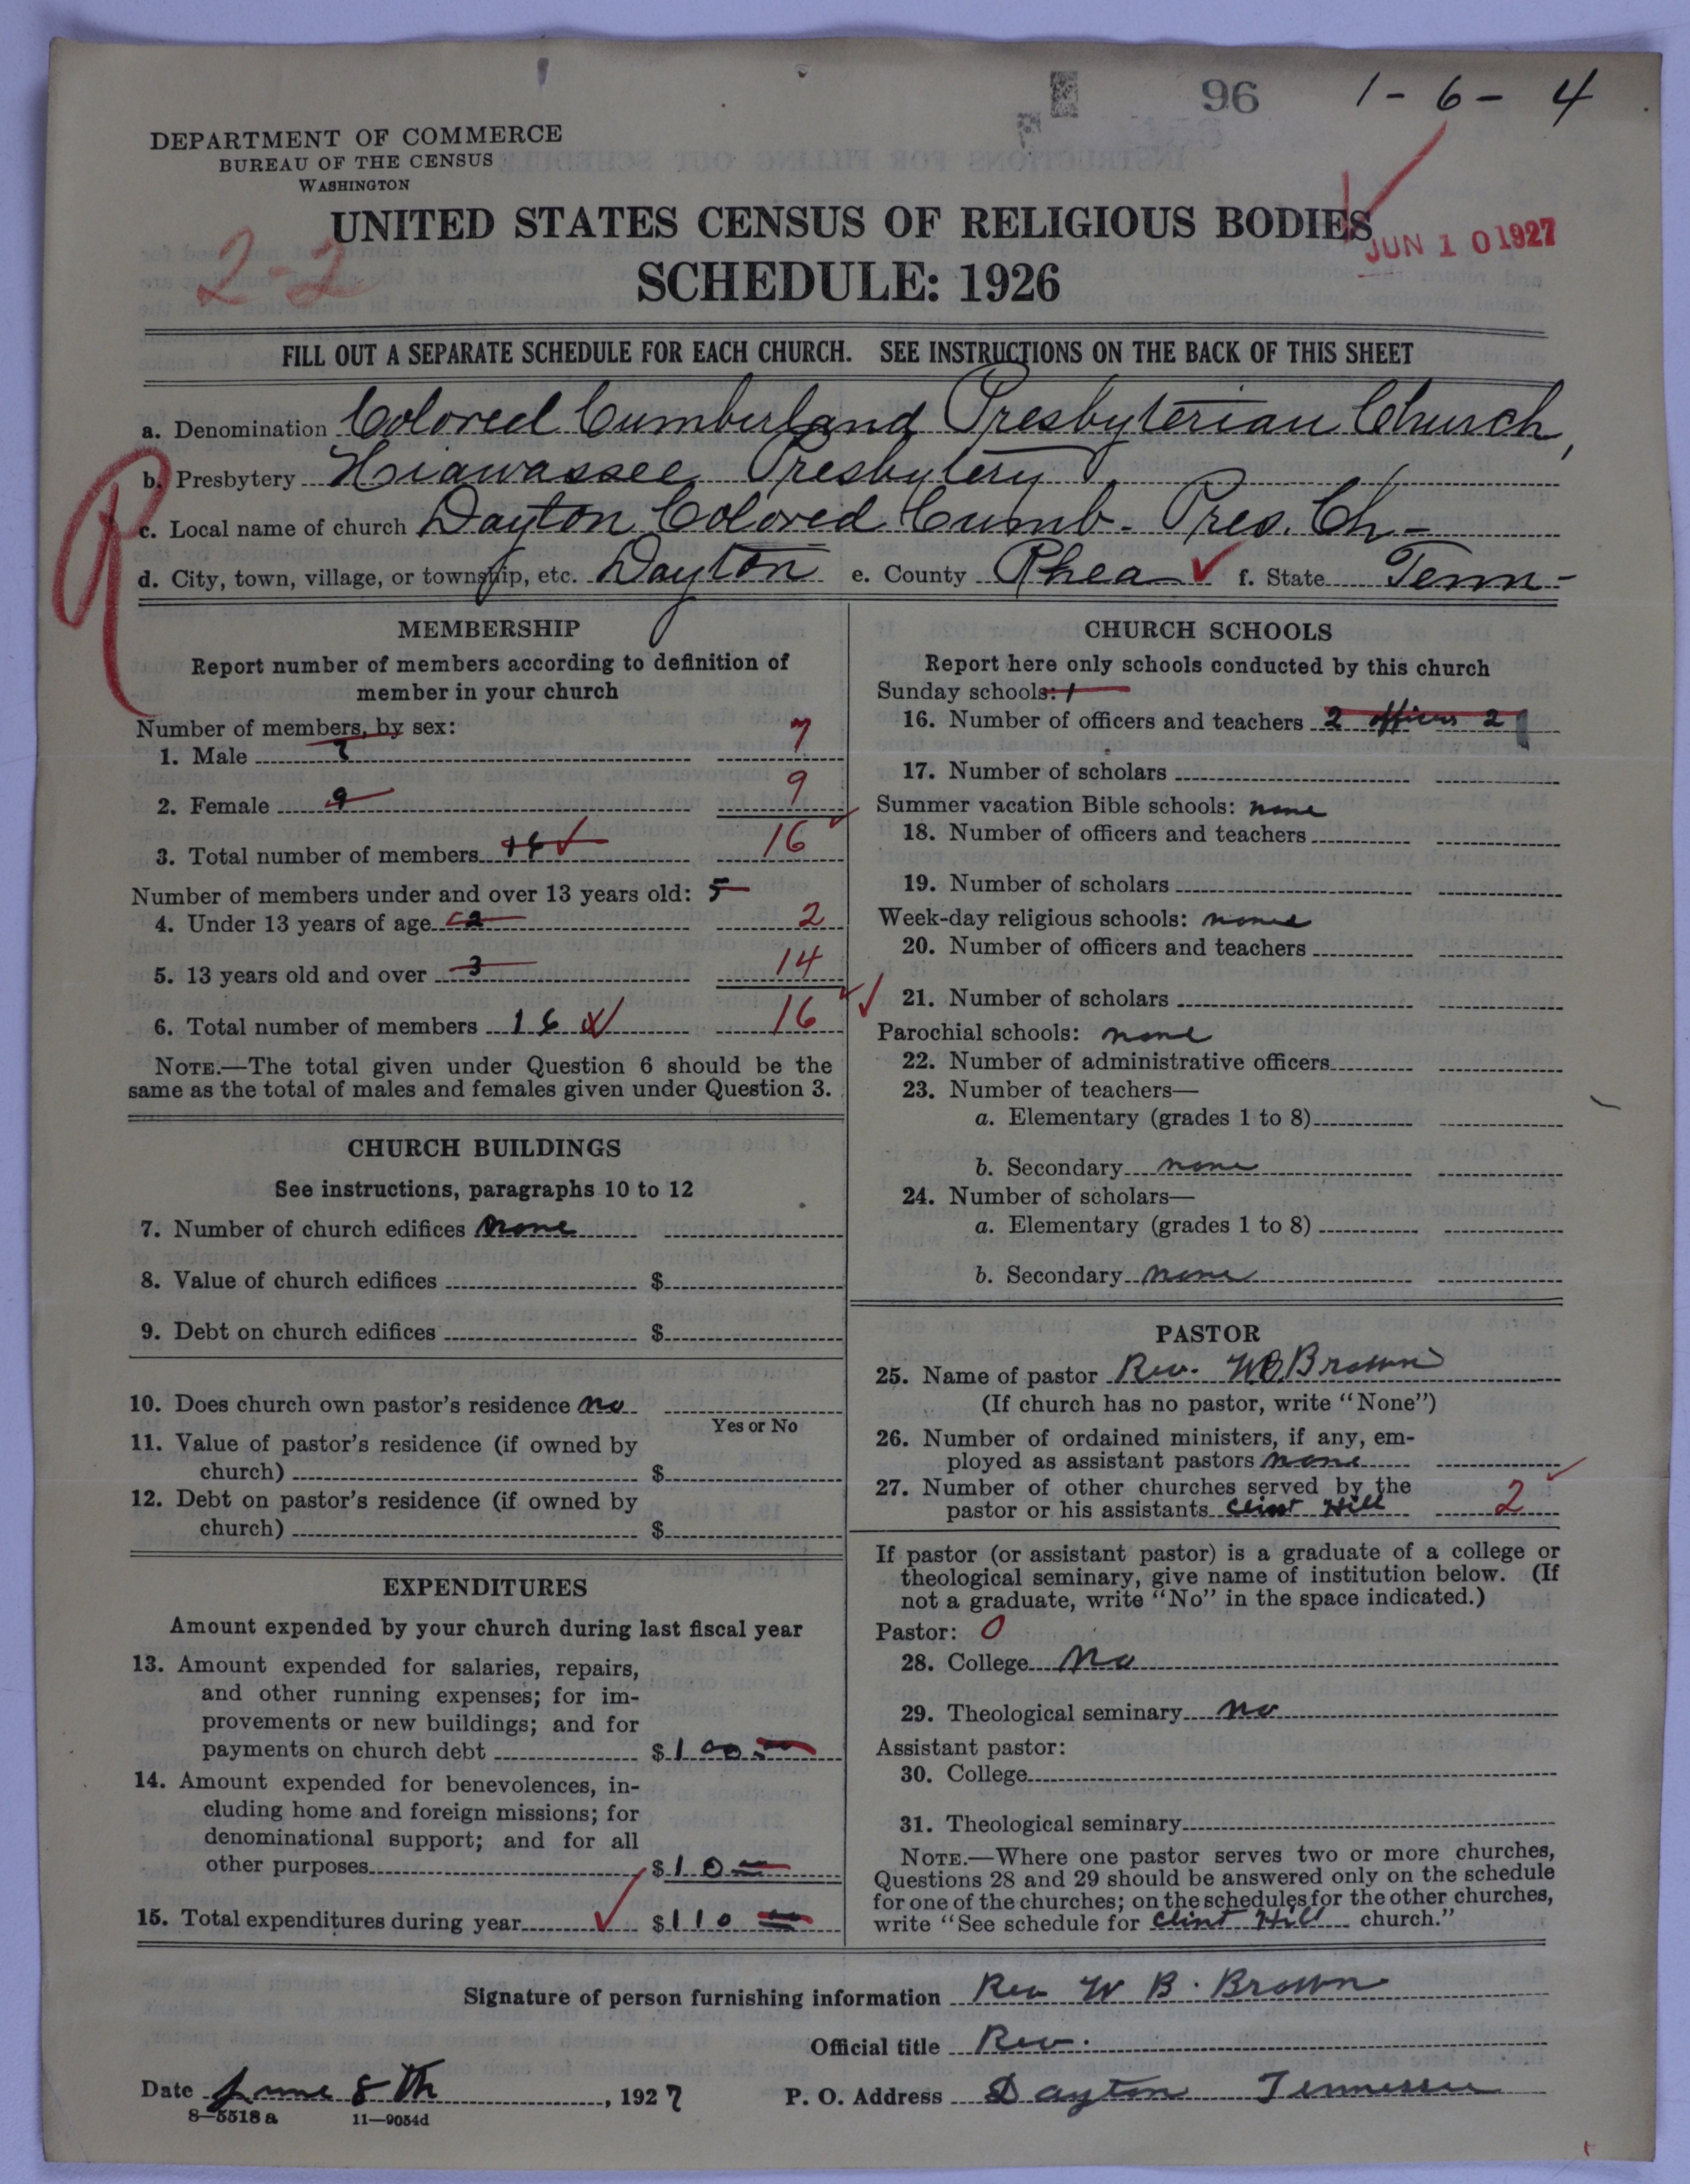 96 1-6-4
DEPARTMENT OF COMMERCE
BUREAU OF THE CENSUS
WASHINGTON
UNITED STATES CENSUS OF RELIGIOUS BODIES
JUN 10 1927
2-2
SCHEDULE: 1926
FILL OUT A SEPARATE SCHEDULE FOR EACH CHURCH. SEE INSTRUCTIONS ON THE BACK OF THIS SHEET
a. Denomination Colored Cumberland Presbyterian Church,
b. Presbytery Hiawassee Presbytery
R
c. Local name of church Dayton Colored Cumb. Pres. Ch-
d. City, town, village, or township, etc. Dayton e. County Rhea f. State Tenn-
MEMBERSHIP
Report number of members according to definition of
member in your church
Number of members, by sex:
1. Male 7 7
2. Female 9 9
3. Total number of members 16 16
Number of members under and over 13 years old: 5
4. Under 13 years of age 2 2
5. 13 years old and over 3 14
6. Total number of members 16 16
NOTE.—The total given under Question 6 should be the
same as the total of males and females given under Question 3.
CHURCH BUILDINGS
See instructions, paragraphs 10 to 12
7. Number of church edifices none
8. Value of church edifices $
9. Debt on church edifices $
10. Does church own pastor's residence no
Yes or No
11. Value of pastor's residence (if owned by
church) $
12. Debt on pastor's residence (if owned by
church) $
EXPENDITURES
Amount expended by your church during last fiscal year
13. Amount expended for salaries, repairs,
and other running expenses; for im-
provements or new buildings; and for
payments on church debt $100
14. Amount expended for benevolences, in-
cluding home and foreign missions; for
denominational support; and for all
other purposes $10
15. Total expenditures during year $110
CHURCH SCHOOLS
Report here only schools conducted by this church
Sunday schools: 1
16. Number of officers and teachers 2 officers 2
17. Number of scholars
Summer vacation Bible schools: none
18. Number of officers and teachers
19. Number of scholars
Week-day religious schools: none
20. Number of officers and teachers
21. Number of scholars
Parochial schools: none
22. Number of administrative officers
23. Number of teachers—
a. Elementary (grades 1 to 8)
b. Secondary none
24. Number of scholars—
a. Elementary (grades 1 to 8)
b. Secondary none
PASTOR
25. Name of pastor Rev. WB Brown
(If church has no pastor, write "None")
26. Number of ordained ministers, if any, em-
ployed as assistant pastors none
27. Number of other churches served by the
pastor or his assistants Clint Hill 2
If pastor (or assistant pastor) is a graduate of a college or
theological seminary, give name of institution below. (If
not a graduate, write "No" in the space indicated.)
Pastor: 0
28. College No
29. Theological seminary no
Assistant pastor:
30. College
31. Theological seminary
NOTE.—Where one pastor serves two or more churches,
Questions 28 and 29 should be answered only on the schedule
for one of the churches; on the schedules for the other churches,
write "See schedule for Clint Hill church."
Signature of person furnishing information Rev W B. Brown
Official title Rev.
Date June 8th, 1927 P. O. Address Dayton Tennessee
8—5518a 11—9054d